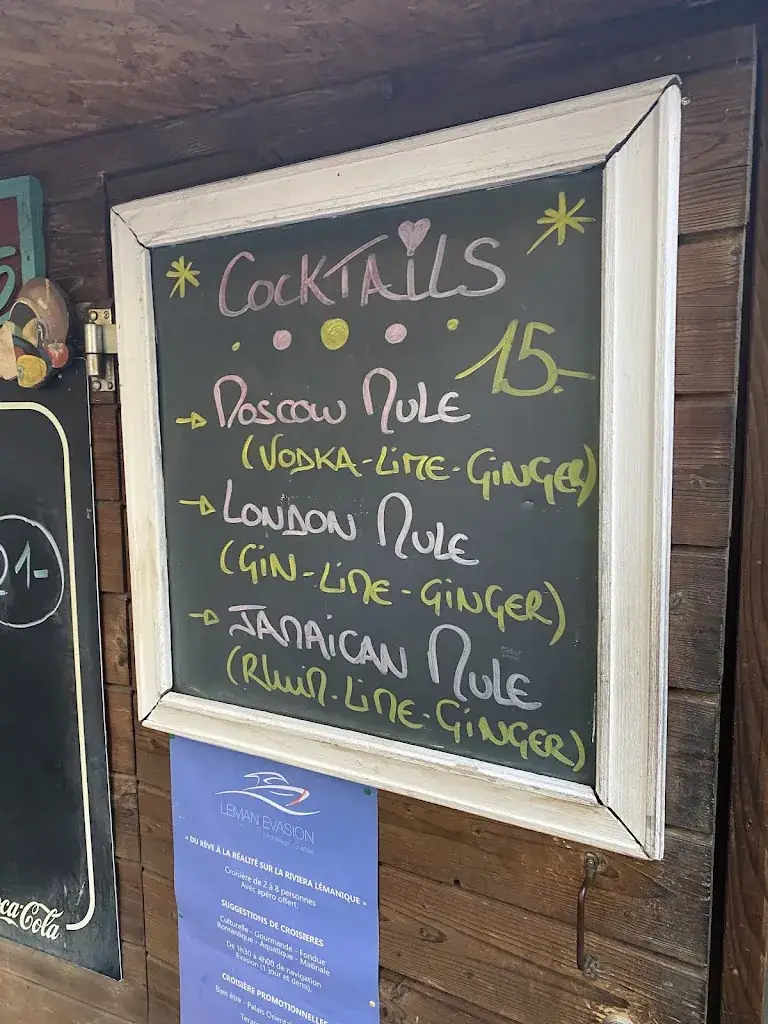 COCKTAILS
15.-
MOSCOW MULE
(VODKA-LIME-GINGER)
LONDON MULE
(GIN-LIME-GINGER)
JAMAICAN MULE
(RHUM-LIME-GINGER)
1-
Coca-Cola
LEMAN EVASION
« DU RÊVE À LA RÉALITÉ SUR LA RIVIERA LÉMANIQUE »
Croisière de 2 à 8 personnes
Avec apéro offert.
SUGGESTIONS DE CROISIERES
Culturelle - Gourmande - Fondue
Romantique - Aquatique - Matinale
De 1h30 à 4h00 de navigation
Evasion (1 jour et demi).
CROISIÈRE PROMOTIONNELLES
Bien être - Palais Oriental